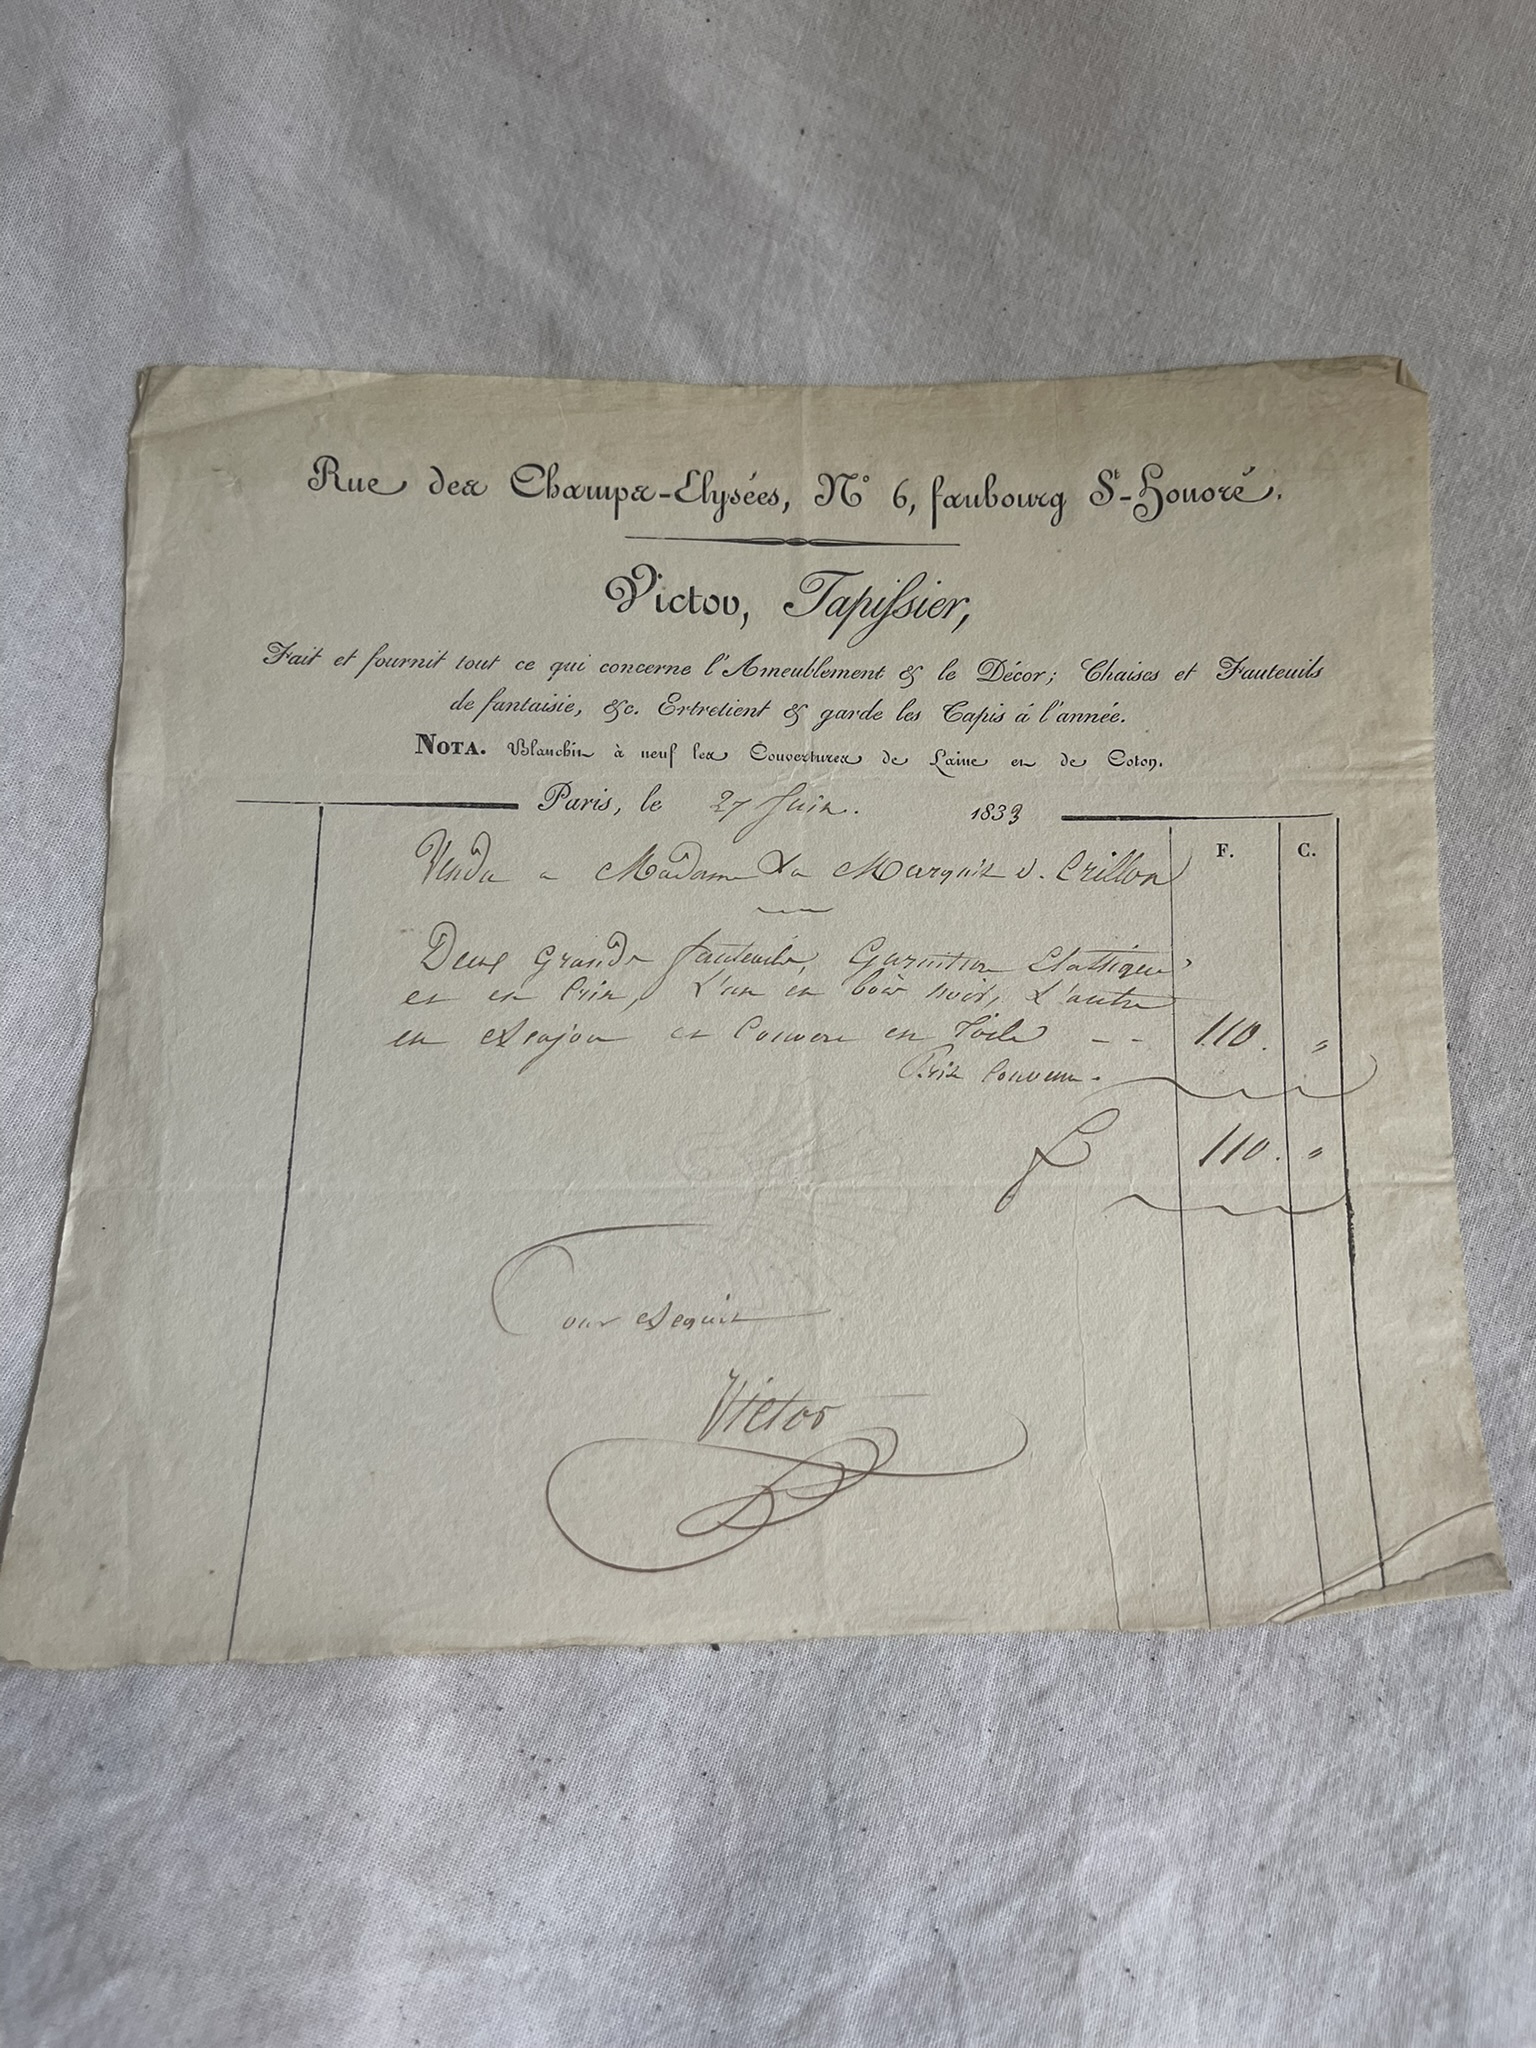 Rue des Champs-Elysées, N° 6, faubourg St-Honoré.
Victor, Tapissier,
Fait et fournit tout ce qui concerne l'Ameublement & le Décor; Chaises et Fauteuils
de fantaisie, &c. Entretient & garde les Tapis à l'année.
NOTA. Blanchit à neuf les Couvertures de Laine et de Coton.
Paris, le 27 Juin. 1833
F. C.
Vendu a Madame La Marquise d. Crillon
Deux Grands fauteuils, Garniture Elastique
et en Crin, L'un en bois noir, L'autre
en Acajou et Couvert en Toile - - 110. "
Prix Convenu.
110. "
Pour Acquit
Victor